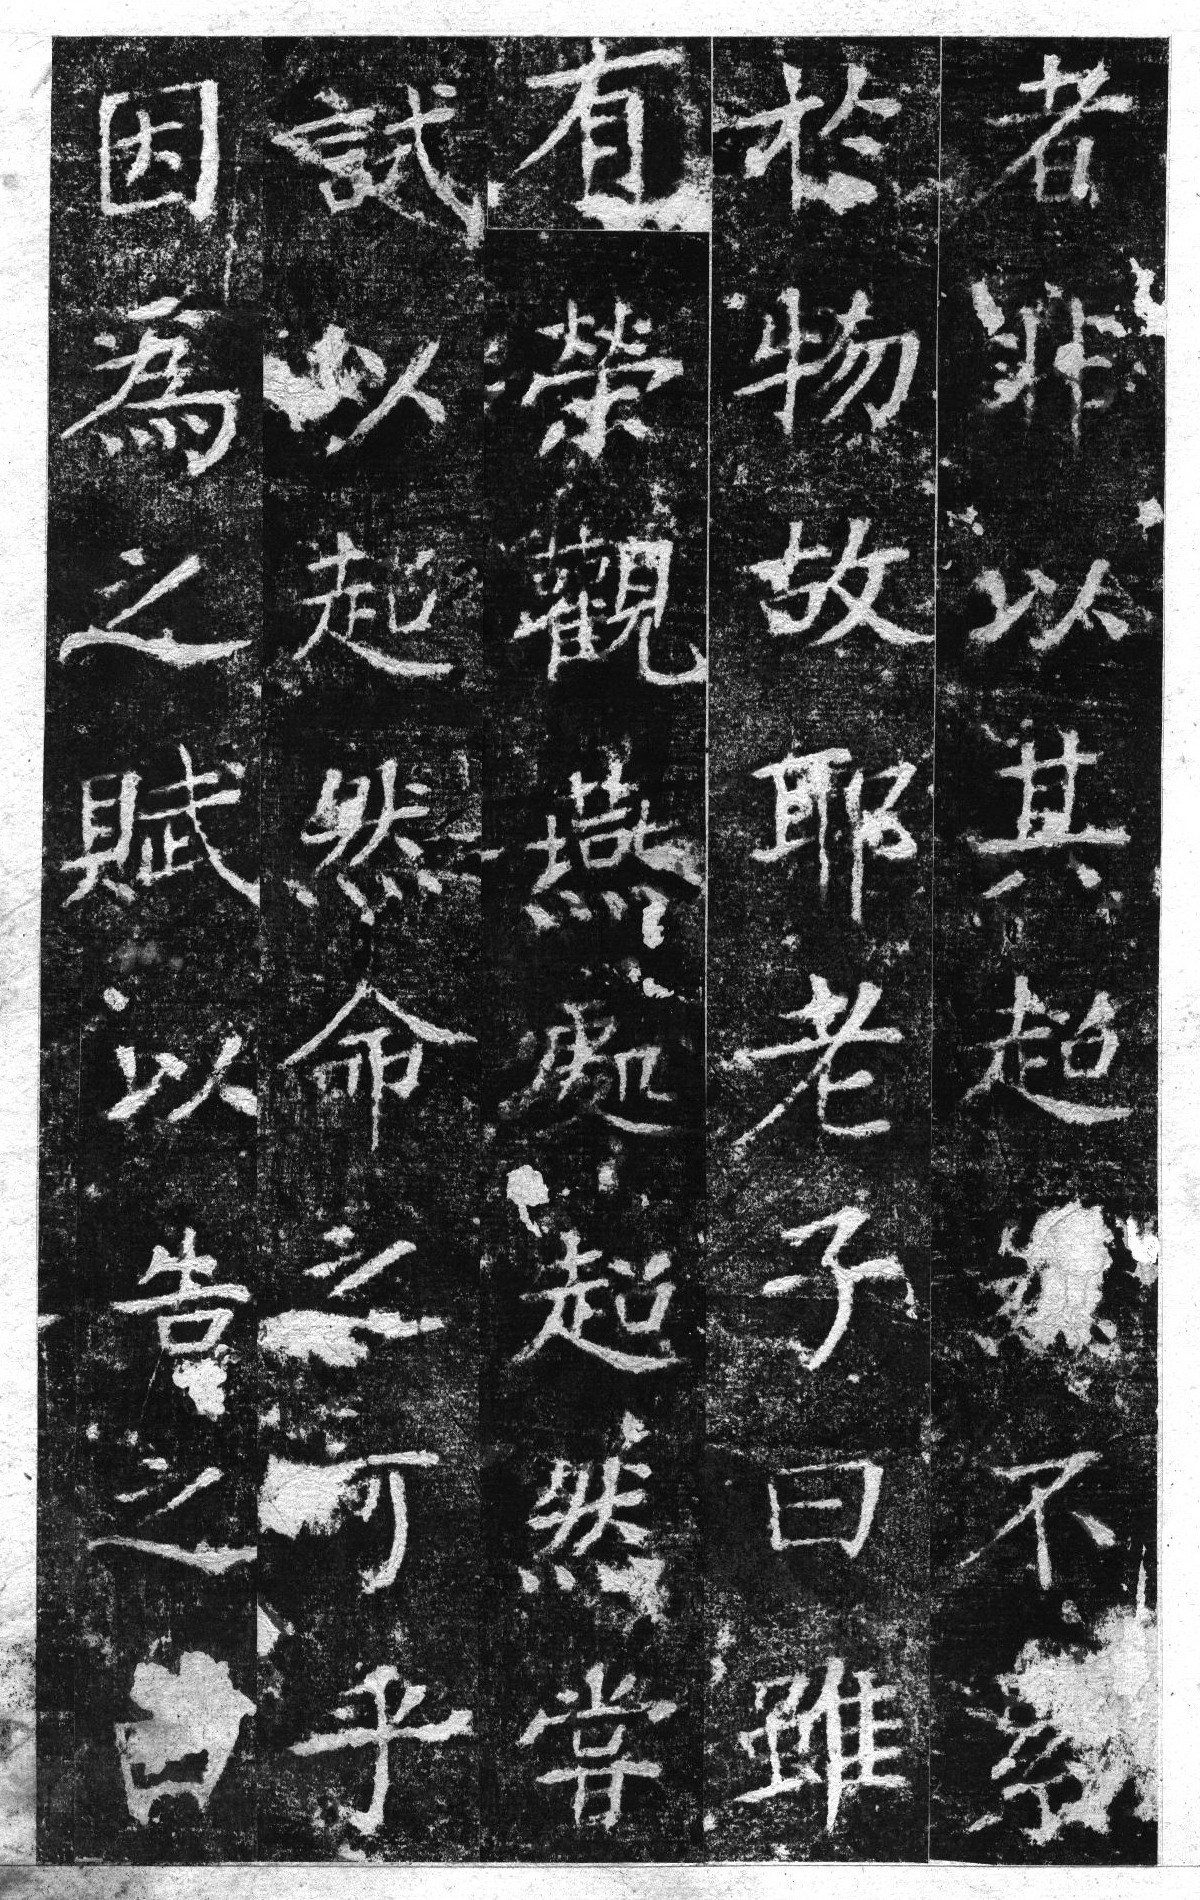 者非以其超然不累
於物故耶老子曰雖
有榮觀燕處超然嘗
試以超然命之可乎
因為之賦以告之曰